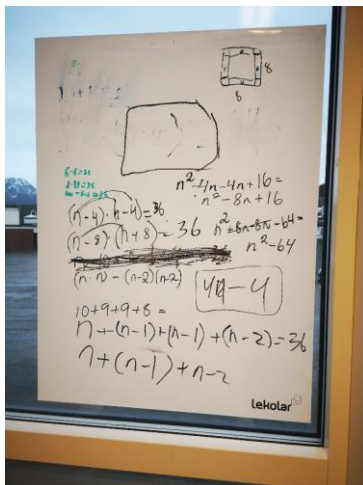 8
8
n²-4n-4n+16=
n²-8n+16
6·6=36
(n-4)·(n-4)=36
(n-8)(n+8)=36
n²+8n-8n-64=
n²-64
(n·n)-(n-2)(n-2)
4n-4
10+9+9+8=
n+(n-1)+(n-1)+(n-2)=36
n+(n-1)+n-2
lekolar